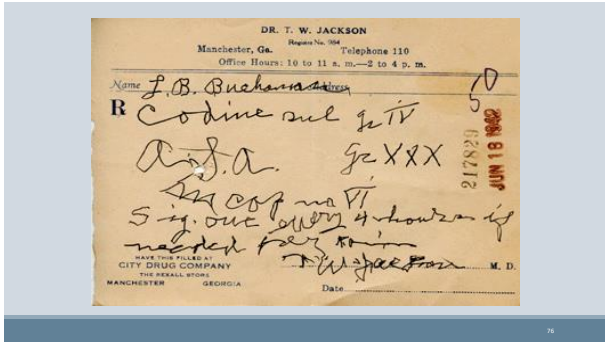 DR. T. W. JACKSON
Registry No. 984
Manchester, Ga. Telephone 110
Office Hours: 10 to 11 a. m.—2 to 4 p. m.
Name L. B. Buchanan Address
50
R Codine sul gr IV
A.S.A. gr XXX
217829
JUN 18 1942
In cap no VI
Sig. one every 4 hours if
needed for pain
HAVE THIS FILLED AT
CITY DRUG COMPANY
THE REXALL STORE
MANCHESTER GEORGIA
T W Jackson M. D.
Date
76